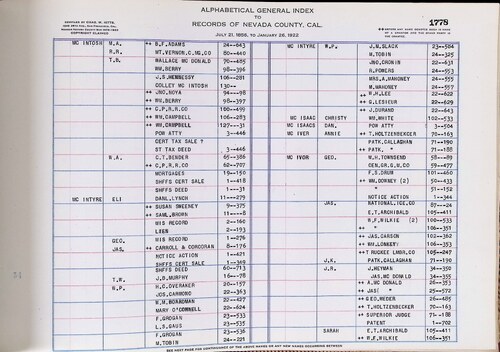 ALPHABETICAL GENERAL INDEX
TO
RECORDS OF NEVADA COUNTY, CAL.
JULY 21, 1856, TO JANUARY 26, 1922
COPYRIGHT CLAIMED
1778
MC INTOSH M.A. ++ B.F. ADAMS 24—043
M.R. MT. VERNON, C.MG, CO 80—440
T.B. WALLACE MC DONALD 70—485
WM. BERRY 98—396
J.S. HENNESSY 106—281
COLLEY MC INTOSH 130—
++ JNO. NOYA 94—98
++ WM. BERRY 98—397
++ C.P.R.R. CO 106—499
++ WM. CAMPBELL 106—283
++ WM. CAMPBELL 127—31
POW ATTY 3—446
CERT TAX SALE ?
ST TAX DEED 3—446
W.A. C.T. BENDER 65—386
++ C.P.R.R. CO 62—707
MORTGAGES 19—150
SHFFS CERT SALE 1—418
SHFFS DEED 1—31
DANL. LYNCH 11—279
MC INTYRE ELI ++ SUSAN SWEENEY 9—375
++ SAML. BROWN 11—8
MIS RECORD 2—160
LIEN 2—193
MIS RECORD 1—276
GEO.
JAS. ++ CARROLL & CORCORAN 8—176
NOTICE ACTION 1—421
SHFFS CERT SALE 1—369
SHFFS DEED 60—713
T.R. J.B. MURPHY 16—78
W.P. H.C. OVERAKER 20—157
JOS. CARMONO 22—363
W.H. BOARDMAN 22—427
MARY O'CONNELL 22—624
F. GROGAN 23—533
L.S. GAUS 23—535
F. GROGAN 23—536
M. TOBIN 24—221
MC INTYRE W.P. J.M. SLACK 23—584
M. TOBIN 24—325
JNO. CRONIN 22—631
R. POWERS 24—553
MRS. A. MAHONEY 24—555
M. MAHONEY 24—557
++ W.H. LEE 22—622
++ G. LESIEUR 22—629
++ J. DURAND 22—643
MC ISAAC CHRISTY WM. WHITE 102—533
MC ISAACS DAN. POW ATTY 3—504
MC IVER ANNIE ++ T. HOLTZENBECKER 70—163
PATK. CALLAGHAN 71—190
++ PATK. " 71—188
MC IVOR GEO. W.H. TOWNSEND 58—89
CEN. GR. G.M. CO 59—477
F.S. DRUM 101—460
++ WM. DOWNEY (2) 50—433
++ " 51—152
NOTICE ACTION 1—344
JAS. NATIONAL ICE. CO 87—24
E.T. ARCHIBALD 105—411
R.F. WILKIE (2) 100—533
++ " 106—351
++ JAS. CARSON 102—362
++ WM. LONNEY 106—353
++ TRUCKEE LMBR. CO 105—247
J.K. PATK. CALLAGHAN 71—190
J.R. J. HEYMAN 34—350
JAS. MC DONALD 34—355
++ A. MC DONALD 26—353
++ JAS. " 25—572
++ GEO. MEDER 26—485
++ T. HOLTZENBECKER 70—163
++ SUPERIOR JUDGE 71—188
PATENT 1—702
SARAH E.T. ARCHIBALD 105—411
++ R.F. WILKIE 106—351